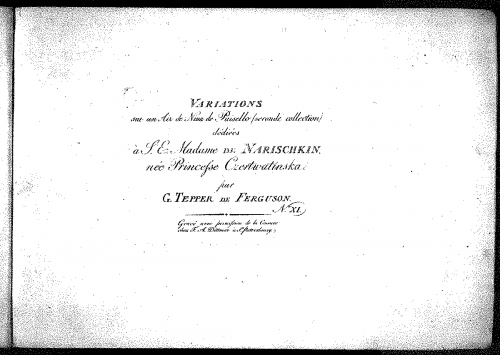 VARIATIONS
sur un Air de Nina de Paisello (seconde collection)
dédiées
à S. E. Madame DE NARISCHKIN,
née Princesse Czertwatinska.
par
G. TEPPER DE FERGUSON.
N.º XI.
Gravé avec permission de la Censure
chez F. A. Dittmar à St. Petersbourg.